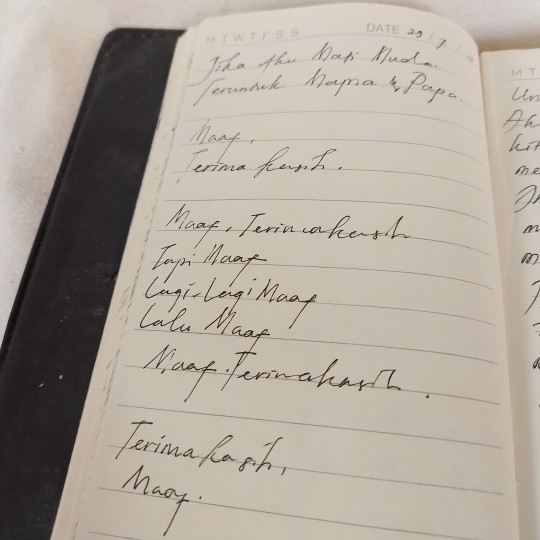 M T W T F S S DATE 29/7/19
Jika Aku Mati Muda.
Teruntuk Mama & Papa.
Maaf,
Terima kasih.
Maaf, Terimakasih
Tapi Maaf
Lagi-Lagi Maaf
Lalu Maaf
Maaf. Terimakasih.
Terima kasih,
Maaf.
M T